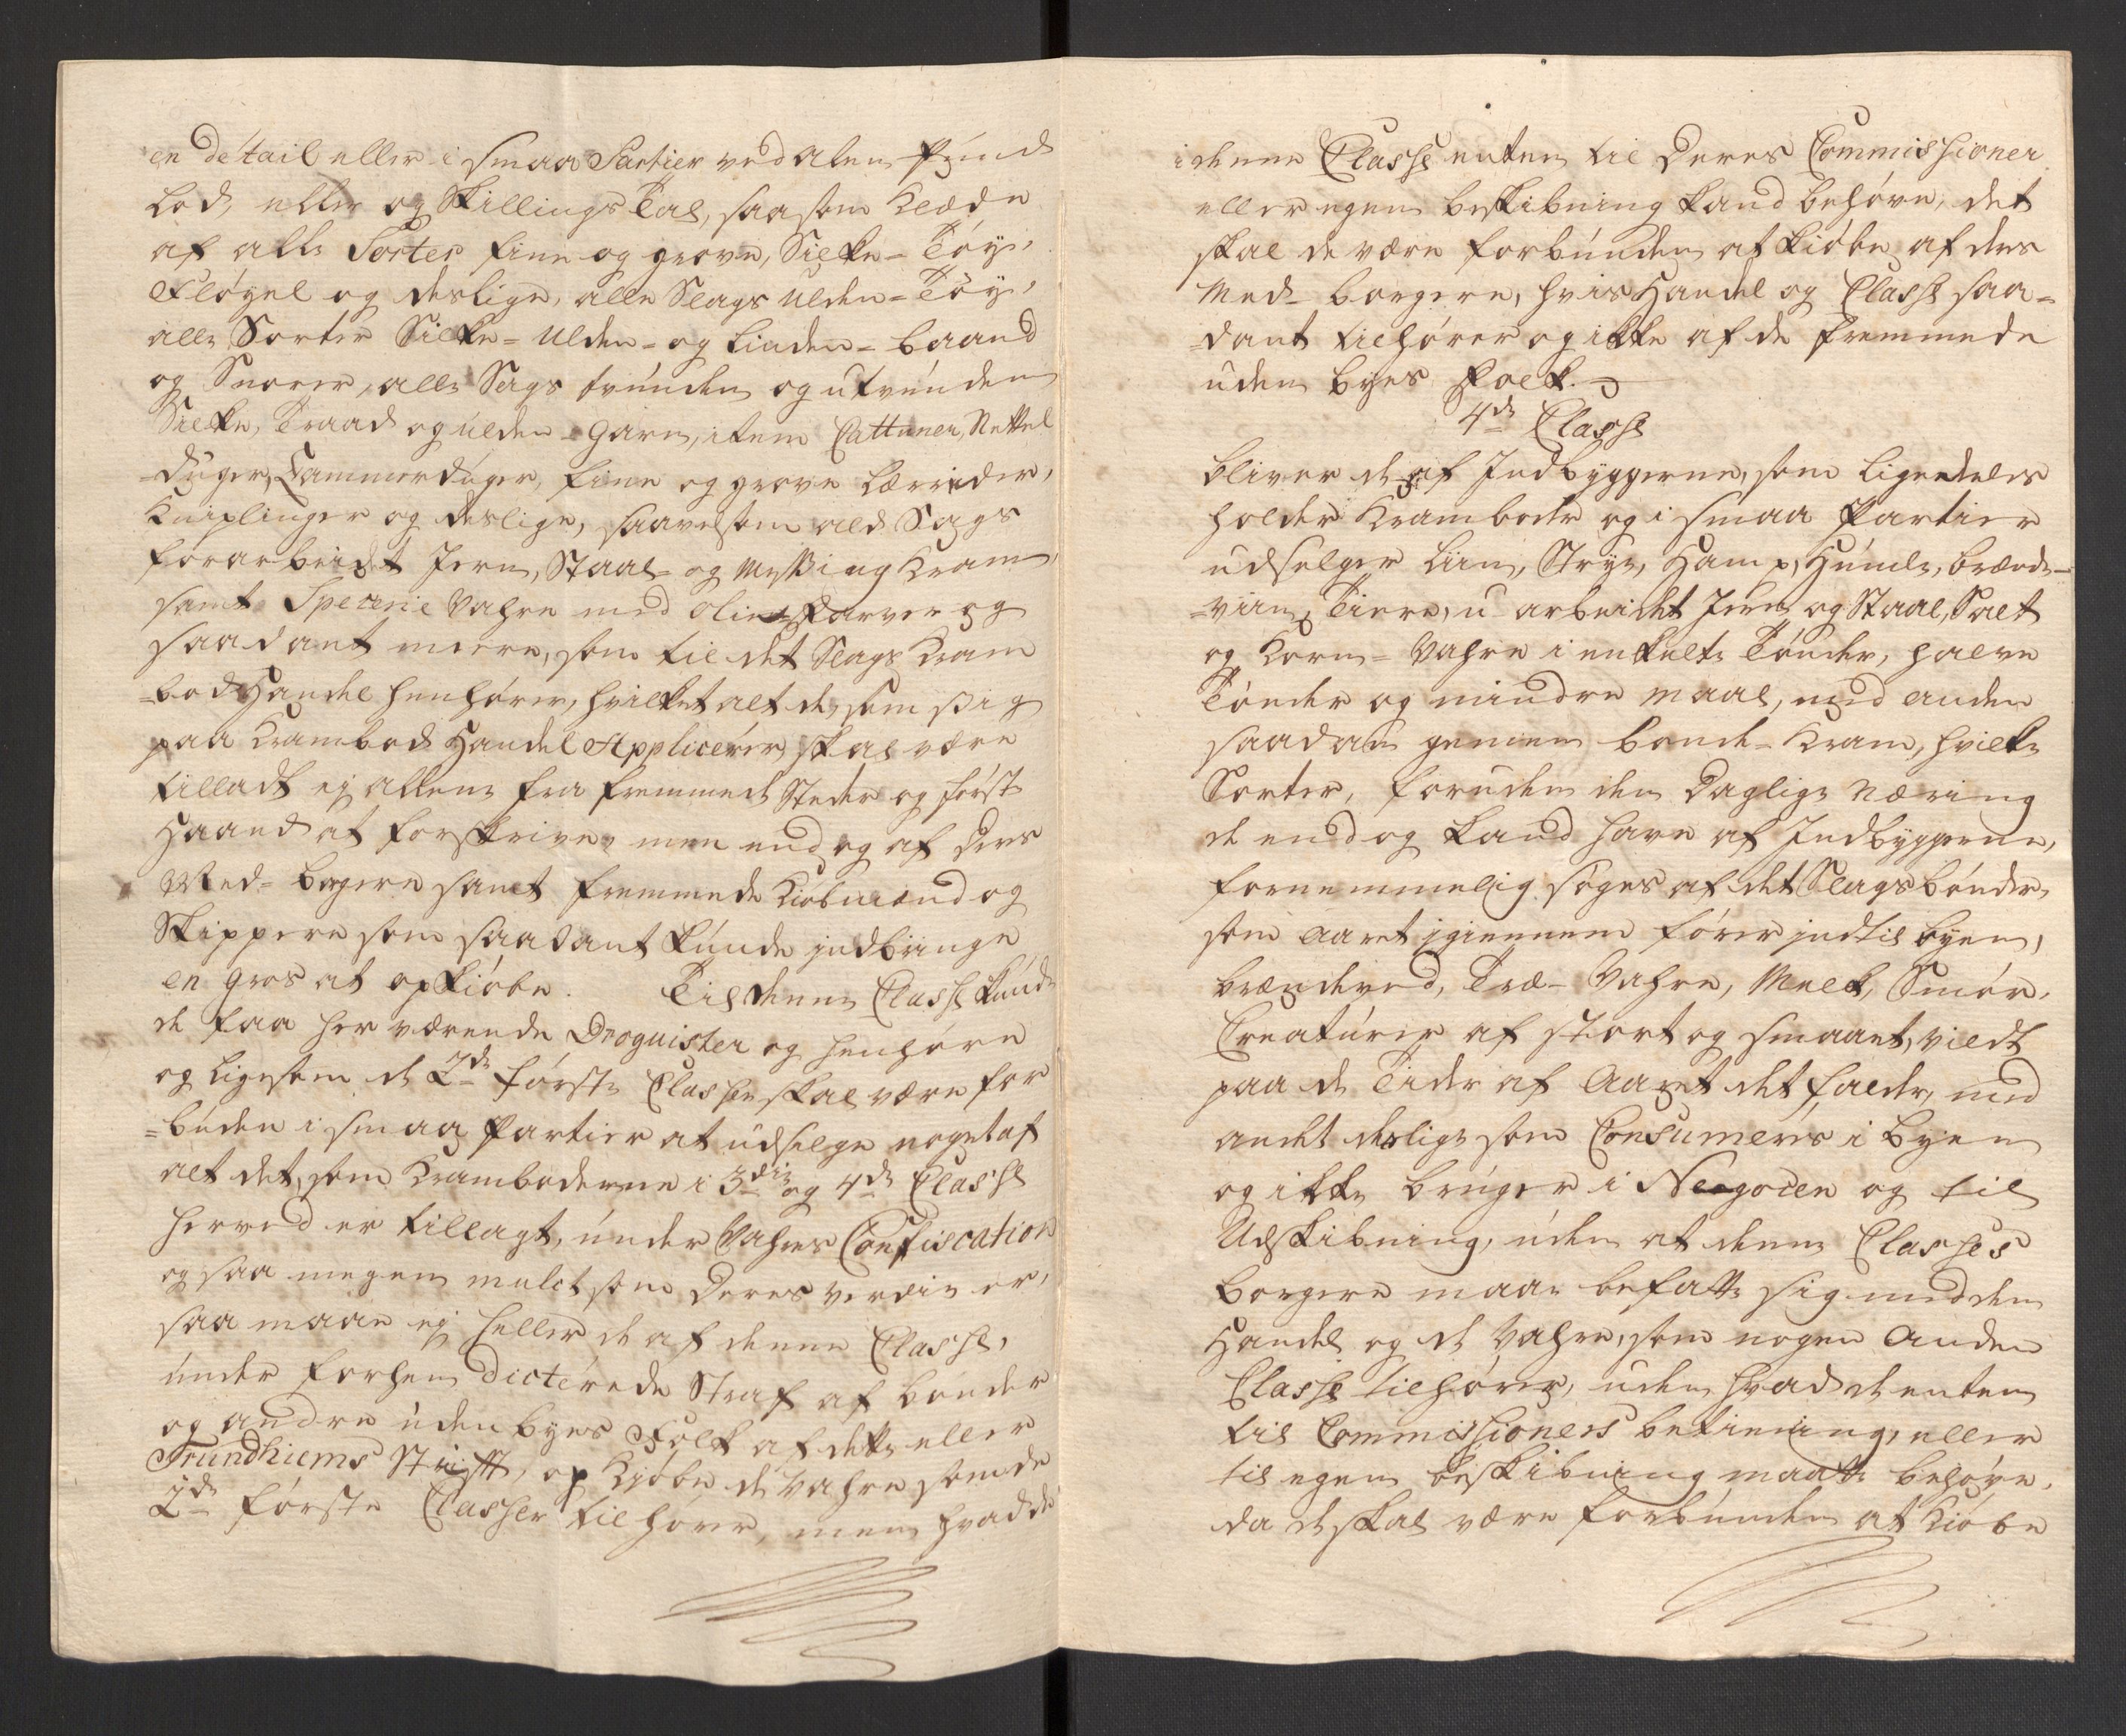 en detail eller i smaa Partier ved alen Pund
Lod, eller og Skillings Tal, saasom Klæde
af alle Sorter fine og grove, Silke-Tøy,
Fløyel og deslige, alle Slags Ulden-Tøy,
alle Sorter Silke- Ulden- og Linden- baand
og Snorer, alle Slags tvunden og utvunden
Silke, Traad og ulden-Garn, item Cattuner, Nettel
-duger, Cammerduger, fine og grove Lærreder,
Kniplinger og deslige, saavelsom ald Slags
forarbeidet Jern, Staal- og Messing Kram,
samt Specerie Vahre med olie farver og
saadant meere, som til det Slags Kram
-bod Handel henhører, hvilket alt de, som sig
paa Krambod Handel Applicerer, skal være
tilladt ej alleene fra fremmede Steder og første
Haand at forskrive men end og af deres
Med-borgere samt fremmede Kiøbmænd og
Skippere som saadant kunde indbringe
en gros at opkiøbe. Til denne Classe kunde
de faa her værende Droguister og henhøre
og ligesom de 2de første Classer skal være for
=buden i smaa Partier at udselge noget af
alt det, som Kramboderne i 3die og 4de Classe
herved er tillagt, under Vahres Confiscation
og saa megen mulct som deres verdie er,
saa maae ej heller de af denne Classe,
under forhen dicterede Straf af bønder
og andre uden byes Folk af dette eller
Trundhiems Stifft, op Kjøbe de Vahre som de
2de første Classer tilhører, men hvad de
i denne Classe enten til deres Commissioner
eller egen beskibning kand behøve, det
skal de være forbunden at kiøbe af deres
Med-borgere, hvis Handel og Classe saa=
=dant tilhører og ikke af de fremmede
uden byes Folk.
4de Classe
bliver de af Indbyggerne, som ligeledes
holder Kramboder og i smaa Partier
udselger Liin, Stryr, Hamp, Humle, brænde-
-viin, Tiere, u-arbeidet Jern og Staal, Salt
og Korn-Vahre i enkelte Tønder, halve
Tønder og mindre maal, med anden
saadan gemen bonde-Kram, hvilke
Sorter, foruden den Daglige Næring
de end og kand have af Indbyggerne,
fornemmelig søges af det Slags bønder
som aaret igiennem fører ind til byen,
brændeved, Træ-Vahre, Melk, Smør,
Creaturer af stort og smaaet, vildt
paa de Tider af Aaret det falder, med
andet deslige som Consumeris i byen
og ikke bruger i Negocen og til
Udskibning, uden at denne Classes
borgere maae befatte sig med den
Handel og de Vahre, som nogen Anden
Classe tilhører, uden hvad de enten
til Commissioners betiening eller
til egen beskibning maatte behøve,
da de skal være forbunden at Kiøbe